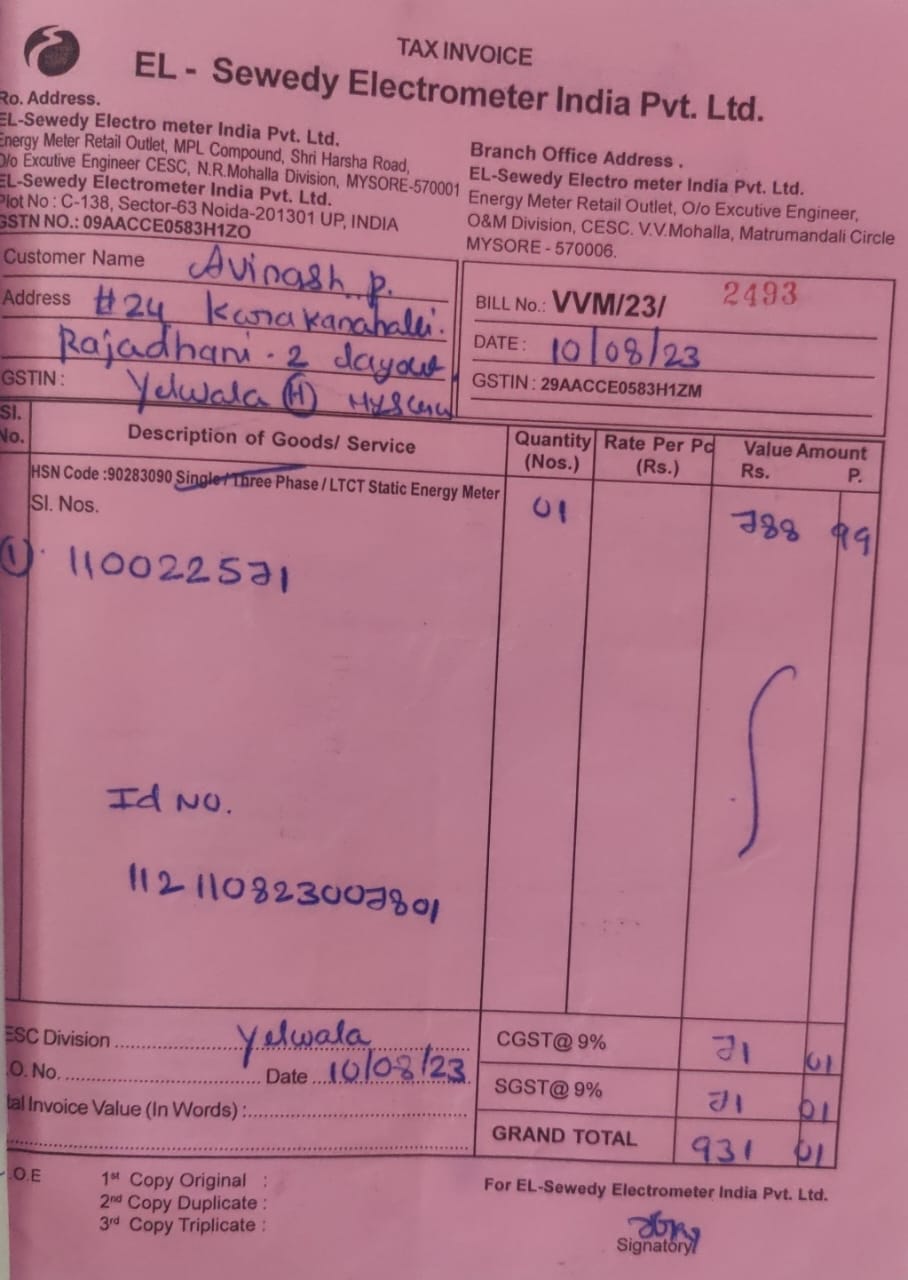 TAX INVOICE
EL - Sewedy Electrometer India Pvt. Ltd.
Ro. Address.
EL-Sewedy Electro meter India Pvt. Ltd.
Energy Meter Retail Outlet, MPL Compound, Shri Harsha Road,
O/o Excutive Engineer CESC, N.R.Mohalla Division, MYSORE-570001
EL-Sewedy Electrometer India Pvt. Ltd.
Plot No : C-138, Sector-63 Noida-201301 UP, INDIA
GSTN NO.: 09AACCE0583H1ZO
Branch Office Address .
EL-Sewedy Electro meter India Pvt. Ltd.
Energy Meter Retail Outlet, O/o Excutive Engineer,
O&M Division, CESC. V.V.Mohalla, Matrumandali Circle
MYSORE - 570006.
Customer Name Avinash. P.
Address #24 Koorakanahalli.
Rajadhani - 2 Layout
GSTIN : Yelwala (H)
BILL No.: VVM/23/ 2493
DATE : 10/08/23
GSTIN : 29AACCE0583H1ZM
Sl. No. Description of Goods/ Service Quantity (Nos.) Rate Per Pc (Rs.) Value Amount Rs. P.
HSN Code :90283090 Single / Three Phase / LTCT Static Energy Meter 01 788 99
Sl. Nos.
(1). 110022571
Id NO.
112110823007801
ESC Division Yelwala
.O. No. Date 10/08/23
tal Invoice Value (In Words) :
CGST@ 9% 71 01
SGST@ 9% 71 01
GRAND TOTAL 931 01
.O.E
1st Copy Original :
2nd Copy Duplicate :
3rd Copy Triplicate :
For EL-Sewedy Electrometer India Pvt. Ltd.
Signatory